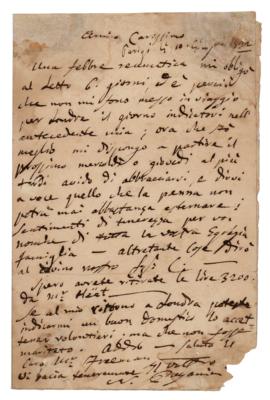 Amico Carissimo
Parigi li 10
Una febbre reumatica mi obligò
al letto 6. giorni, ed è perciò
che non mi sono messo in viaggio
per Londra il giorno indicatovi nell'
antecedente mia; ora che sto
meglio mi dispongo a partire il
prossimo mercoldì o giovedì al più
tardi avido di abbracciarvi, e dirvi
a voce quello che la penna non
potrà mai abbastanza esternare;
sentimenti di tenerezza per voi
non che di tutta la vostra
famiglia — altrettante cose dirò
al divino nostro
Spero avrete ritirate le lire 3200
da Mr.
Se al mio ritorno a Londra poteste
indicarmi un buon domestico lo accet
terei volontieri; ma che non fosse
maritato. Addio — Salutate il
Caro Mr. Freeman
vi bacia teneramente
N. Paganini